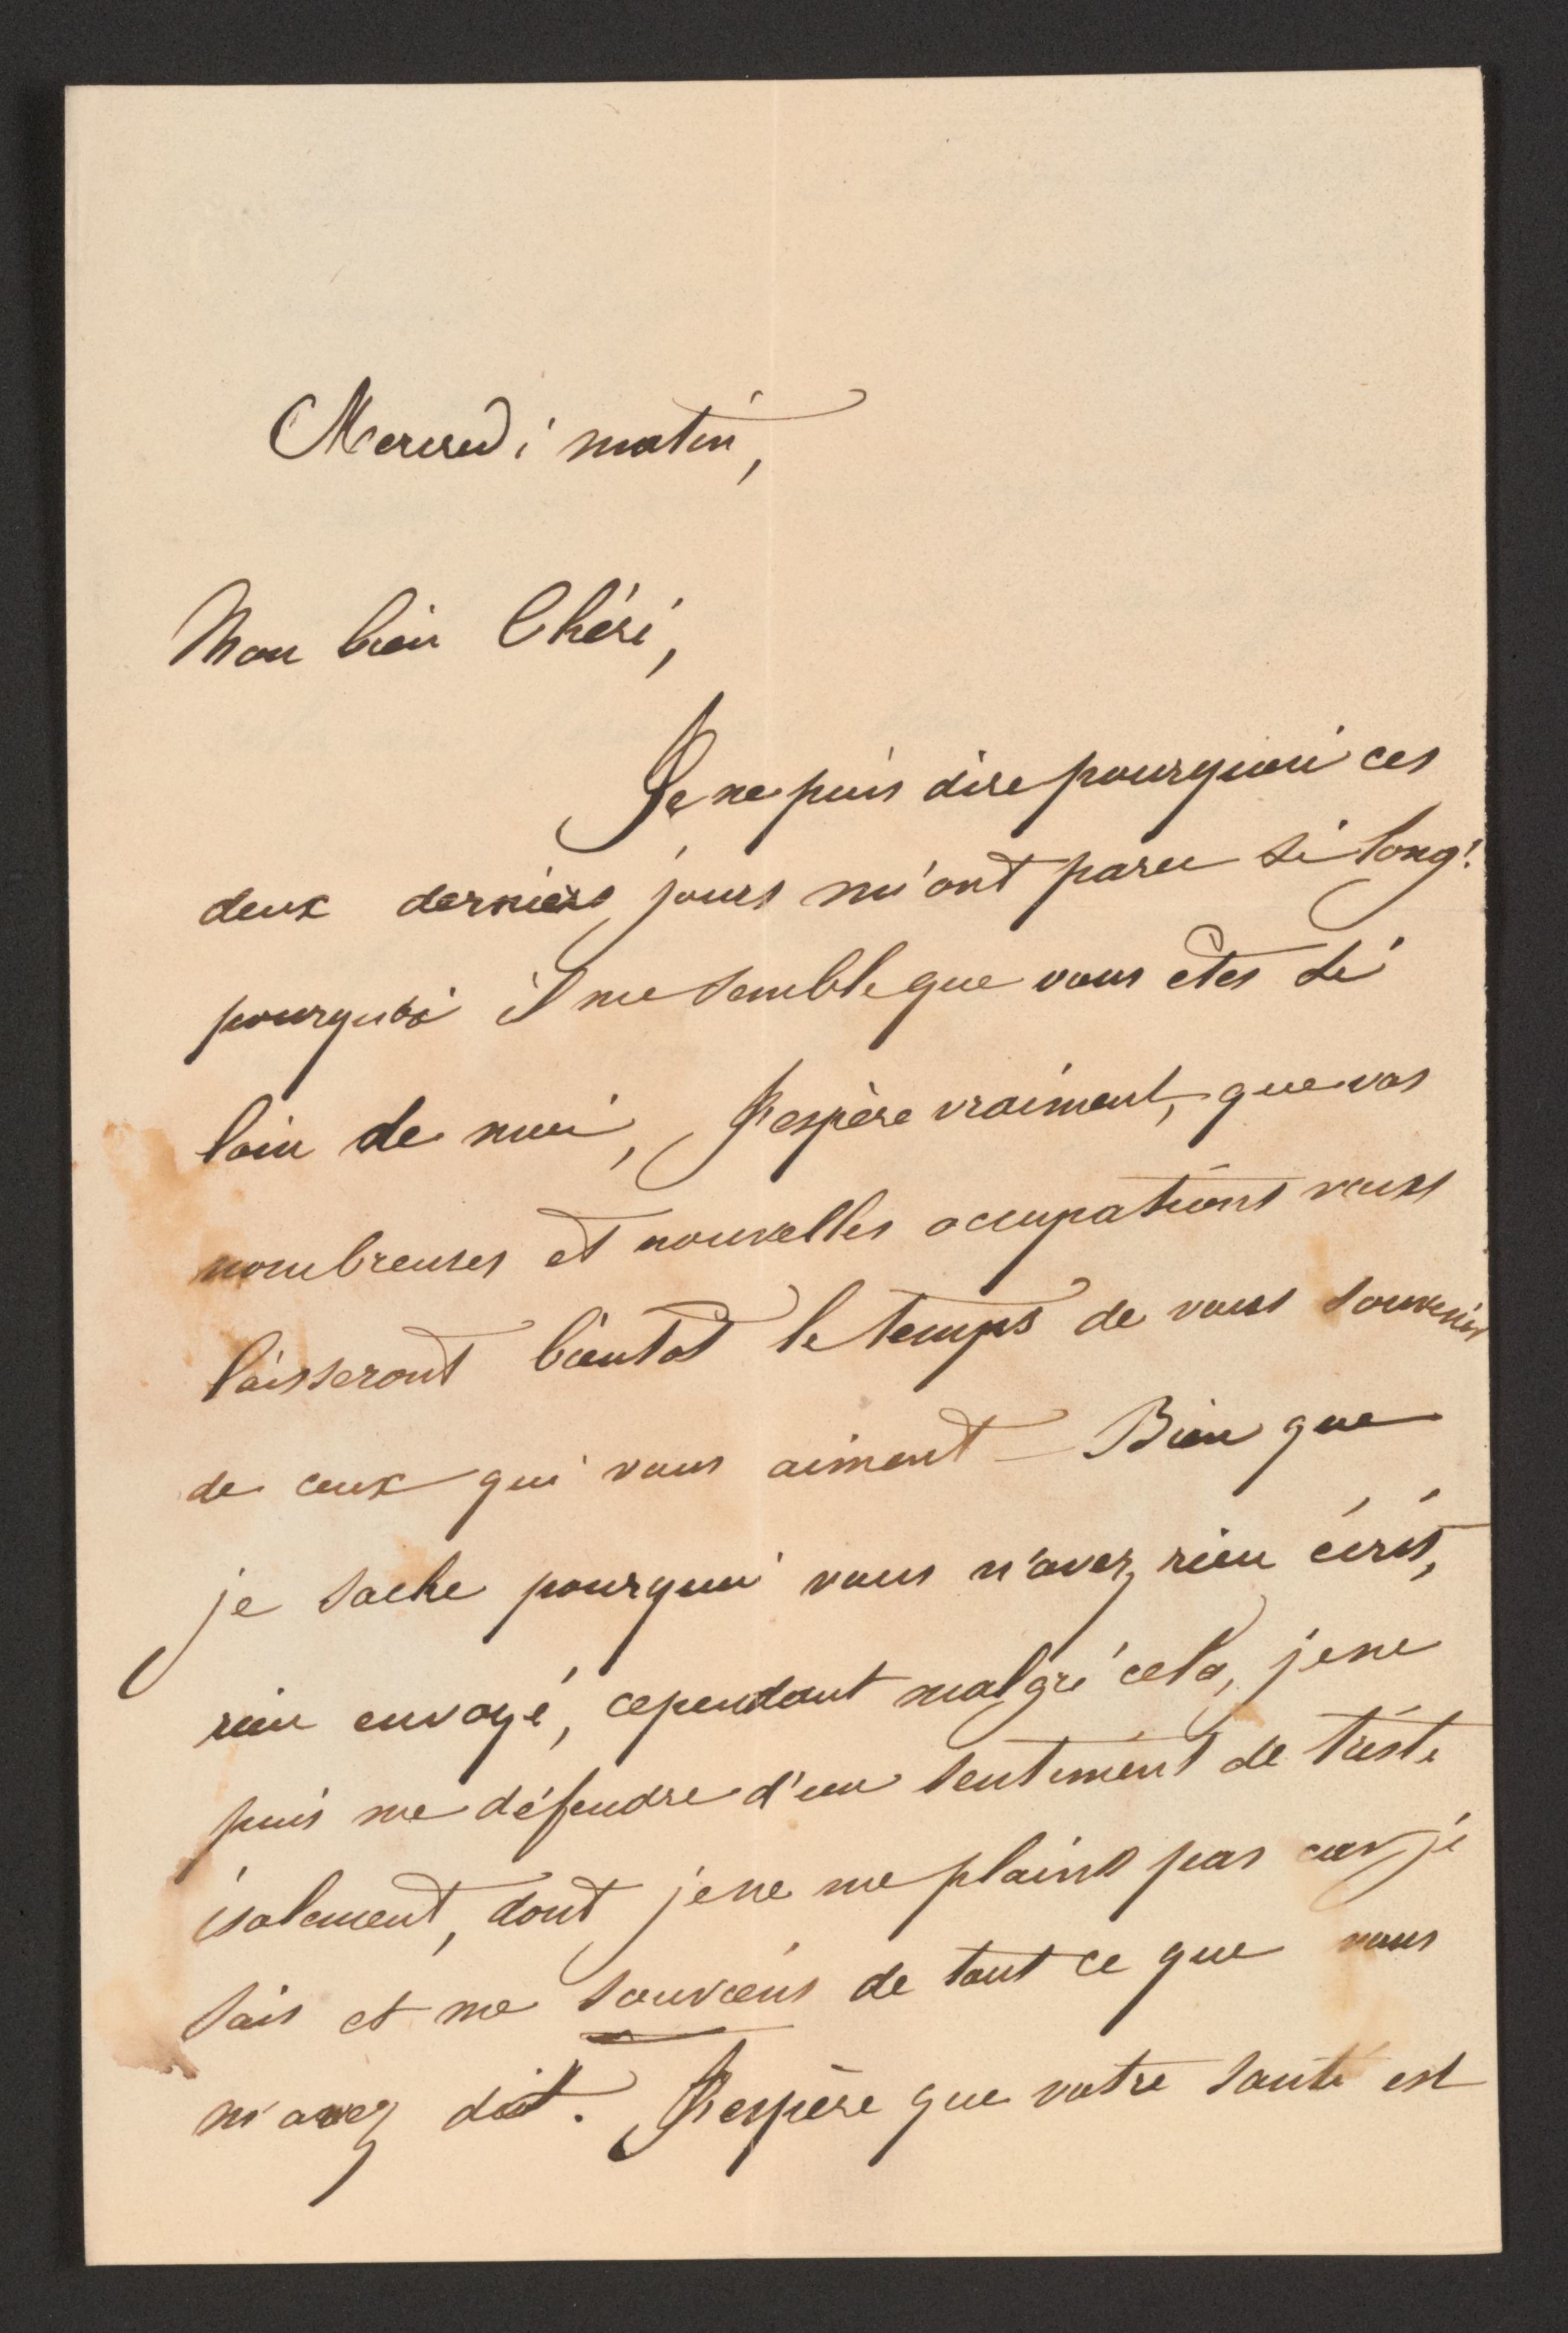 Mercredi matin,
Mon bien Chéri,
Je ne puis dire pourquoi ces
deux derniers jours m'ont paru si long!
pourquoi il me semble que vous êtes si
loin de moi, J'espère vraiment, que vos
nombreuses et nouvelles occupations vous
laisseront bientôt le temps de vous souvenir
de ceux qui vous aiment – Bien que
je sache pourquoi vous n'avez rien écrit,
rien envoyé, cependant malgré cela, je ne
puis me défendre d'un sentiment de triste
isolement, dont je ne me plains pas car je
sais et me souviens de tout ce que vous
m'avez dit. J'espère que votre santé est